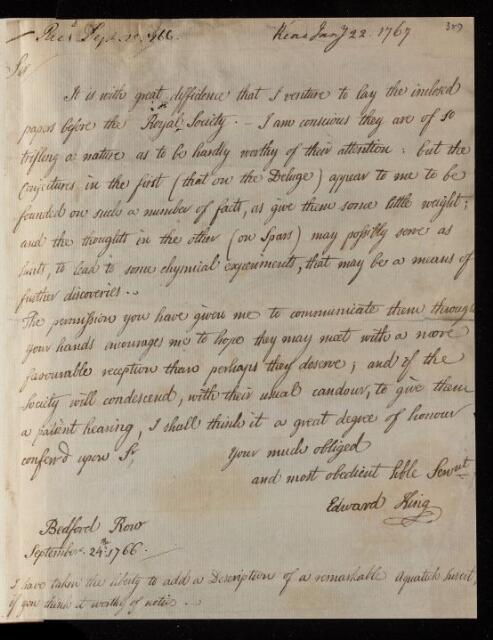 Read Jan.y 22. 1767
Sir
It is with great diffidence that I venture to lay the inclosed
papers before the Royal Society. - I am conscious they are of so
trifling a nature as to be hardly worthy of their attention: but the
Conjectures in the first (that on the Deluge) appear to me to be
founded on such a number of facts, as give them some little weight;
and the thoughts in the other (on Spars) may possibly serve as
hints, to lead to some chymical experiments, that may be a means of
further discoveries..
The permission you have given me to communicate them through
your hands encourages me to hope they may meet with a more
favourable reception than perhaps they deserve; and if the
Society will condescend, with their usual candour, to give them
a patient hearing, I shall think it a great degree of honour
conferr'd upon Sr,
Your much obliged
and most obedient hble Servnt
Edward King
Bedford Row
September 24th 1766.
I have taken the liberty to add a Description of a remarkable Aquatick Insect,
if you think it worthy of notice..